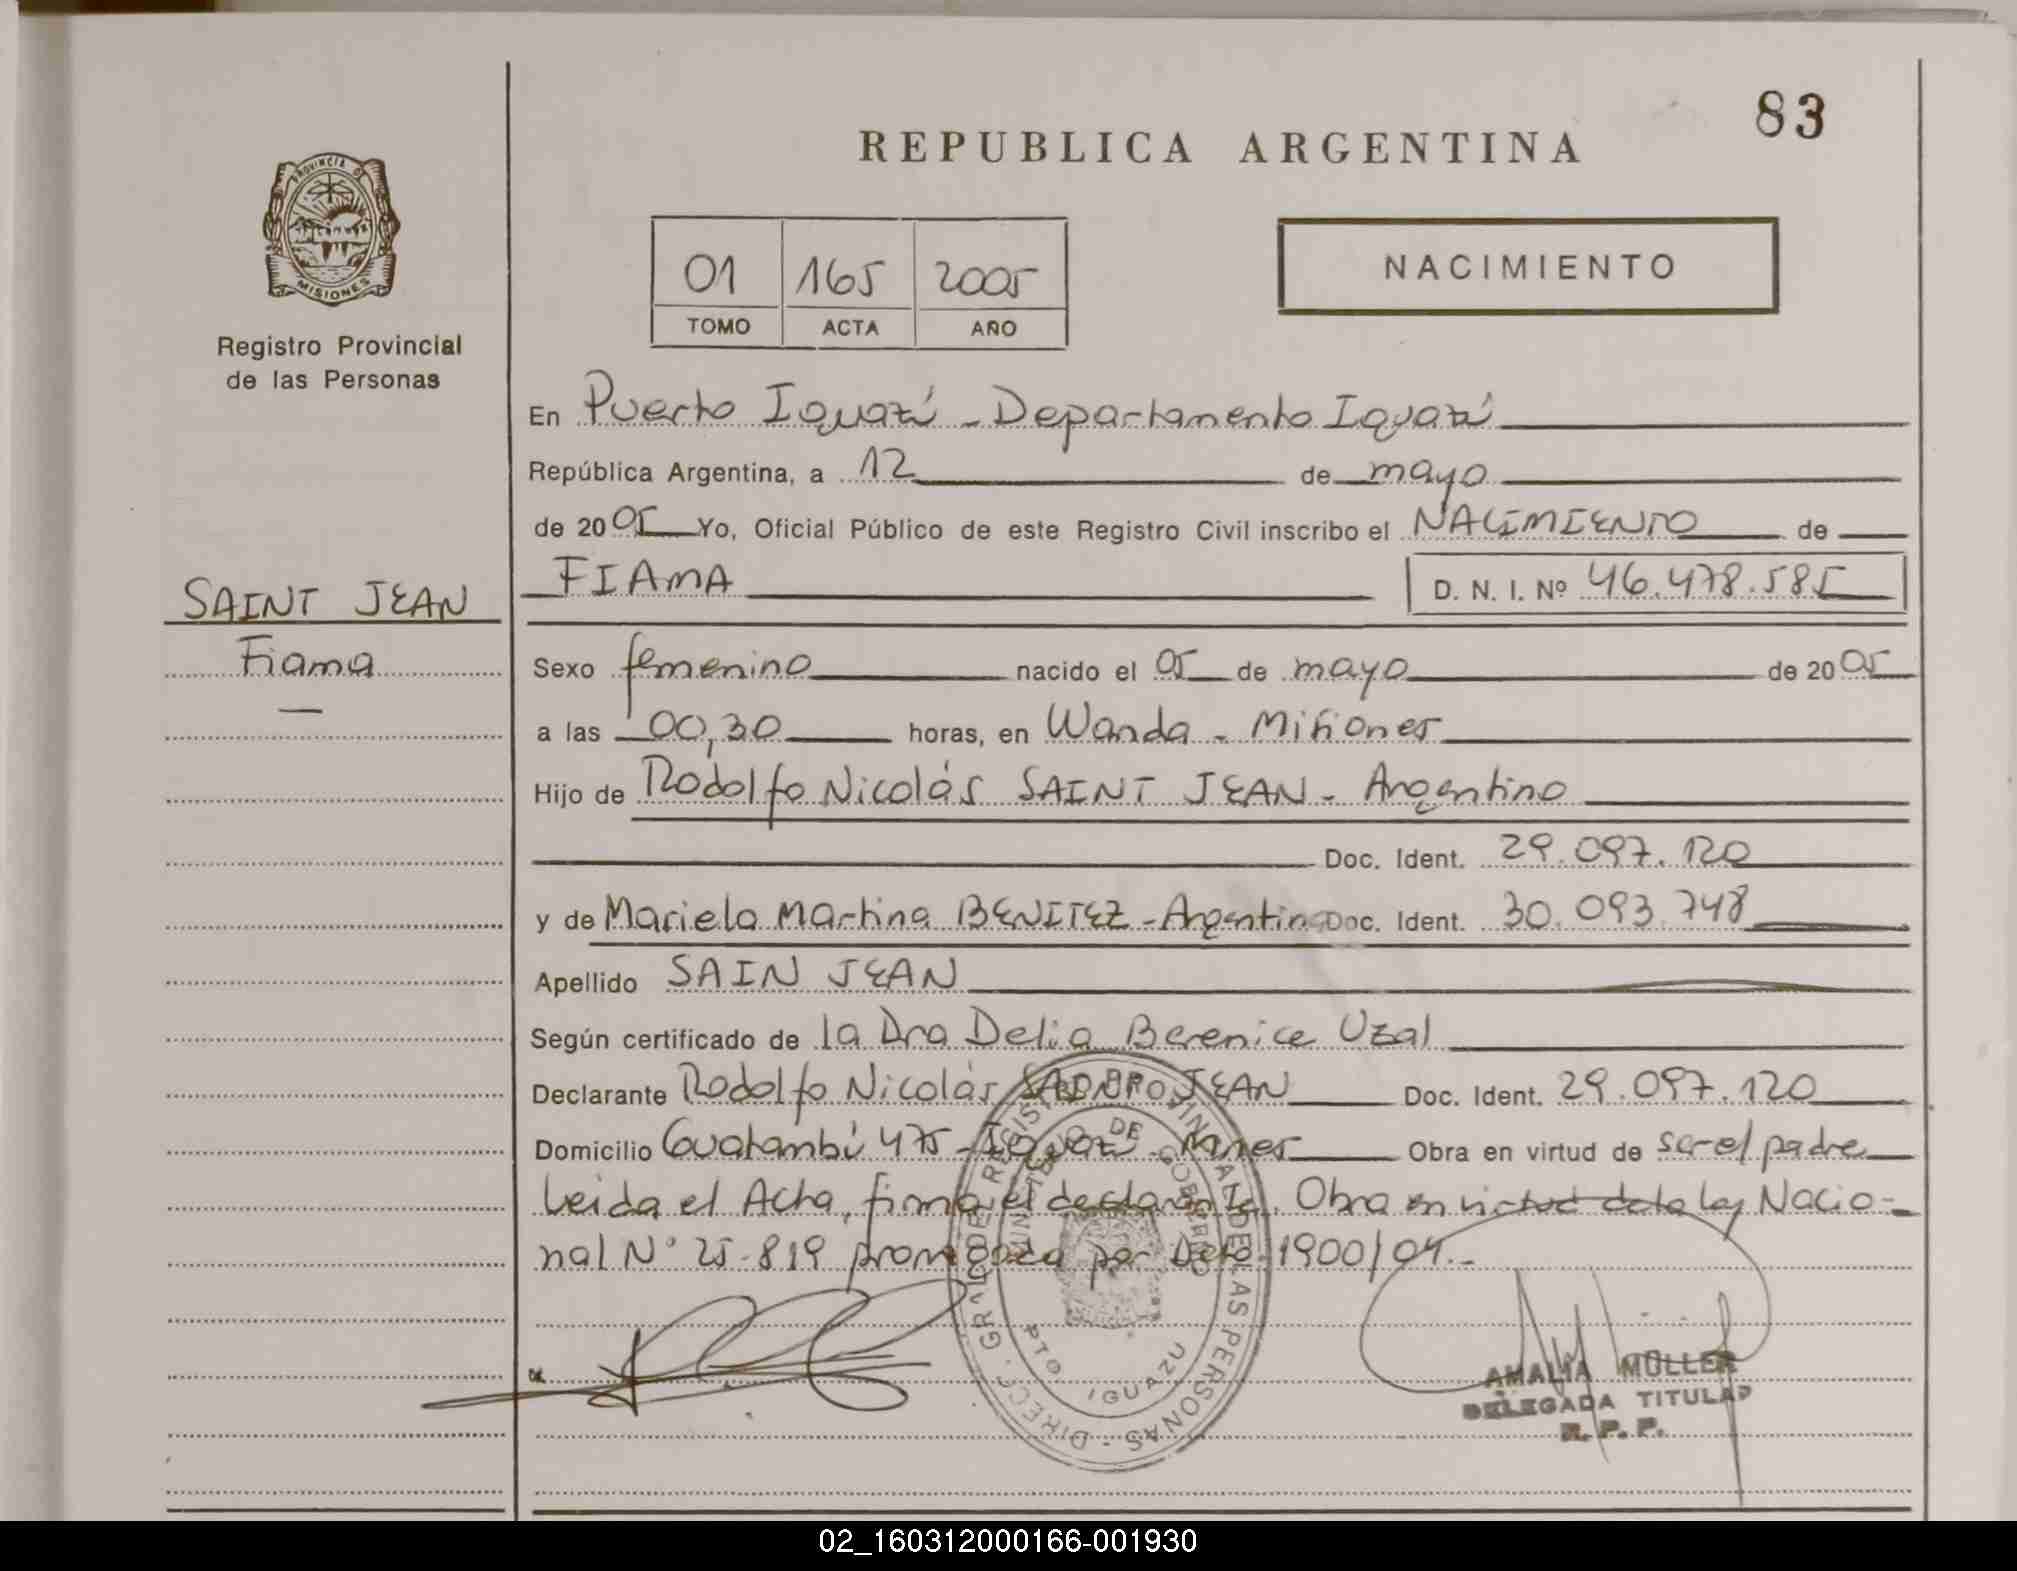 83
REPUBLICA ARGENTINA
PROVINCIA DE
MISIONES
Registro Provincial
de las Personas
01 165 2005
TOMO ACTA AÑO
NACIMIENTO
En Puerto Iguazú - Departamento Iguazú
República Argentina, a 12 de mayo
de 2005 Yo, Oficial Público de este Registro Civil inscribo el NACIMIENTO de
FIAMA D. N. I. Nº 46.478.585
SAINT JEAN
Fiama
Sexo femenino nacido el 05 de mayo de 2005
a las 00,30 horas, en Wanda - Misiones
Hijo de Rodolfo Nicolás SAINT JEAN - Argentino
Doc. Ident. 29.097.120
y de Mariela Martina BENITEZ - Argentina Doc. Ident. 30.093.748
Apellido SAIN JEAN
Según certificado de la Dra Delia Berenice Uzal
Declarante Rodolfo Nicolás SAINT JEAN Doc. Ident. 29.097.120
Domicilio Guatambú 475 - Iguazú - Mnes Obra en virtud de ser el padre
Leida el Acta, firma el declarante. Obra en virtud de la ley Nacio-
nal Nº 25.819 por Dcto 1900/04.-
DIRECC. GRAL DE REGISTRO PROVINCIAL DE LAS PERSONAS
MINISTERIO DE GOBIERNO
PTO IGUAZU
AMALIA MÜLLER
DELEGADA TITULAR
R. P. P.
02_160312000166-001930